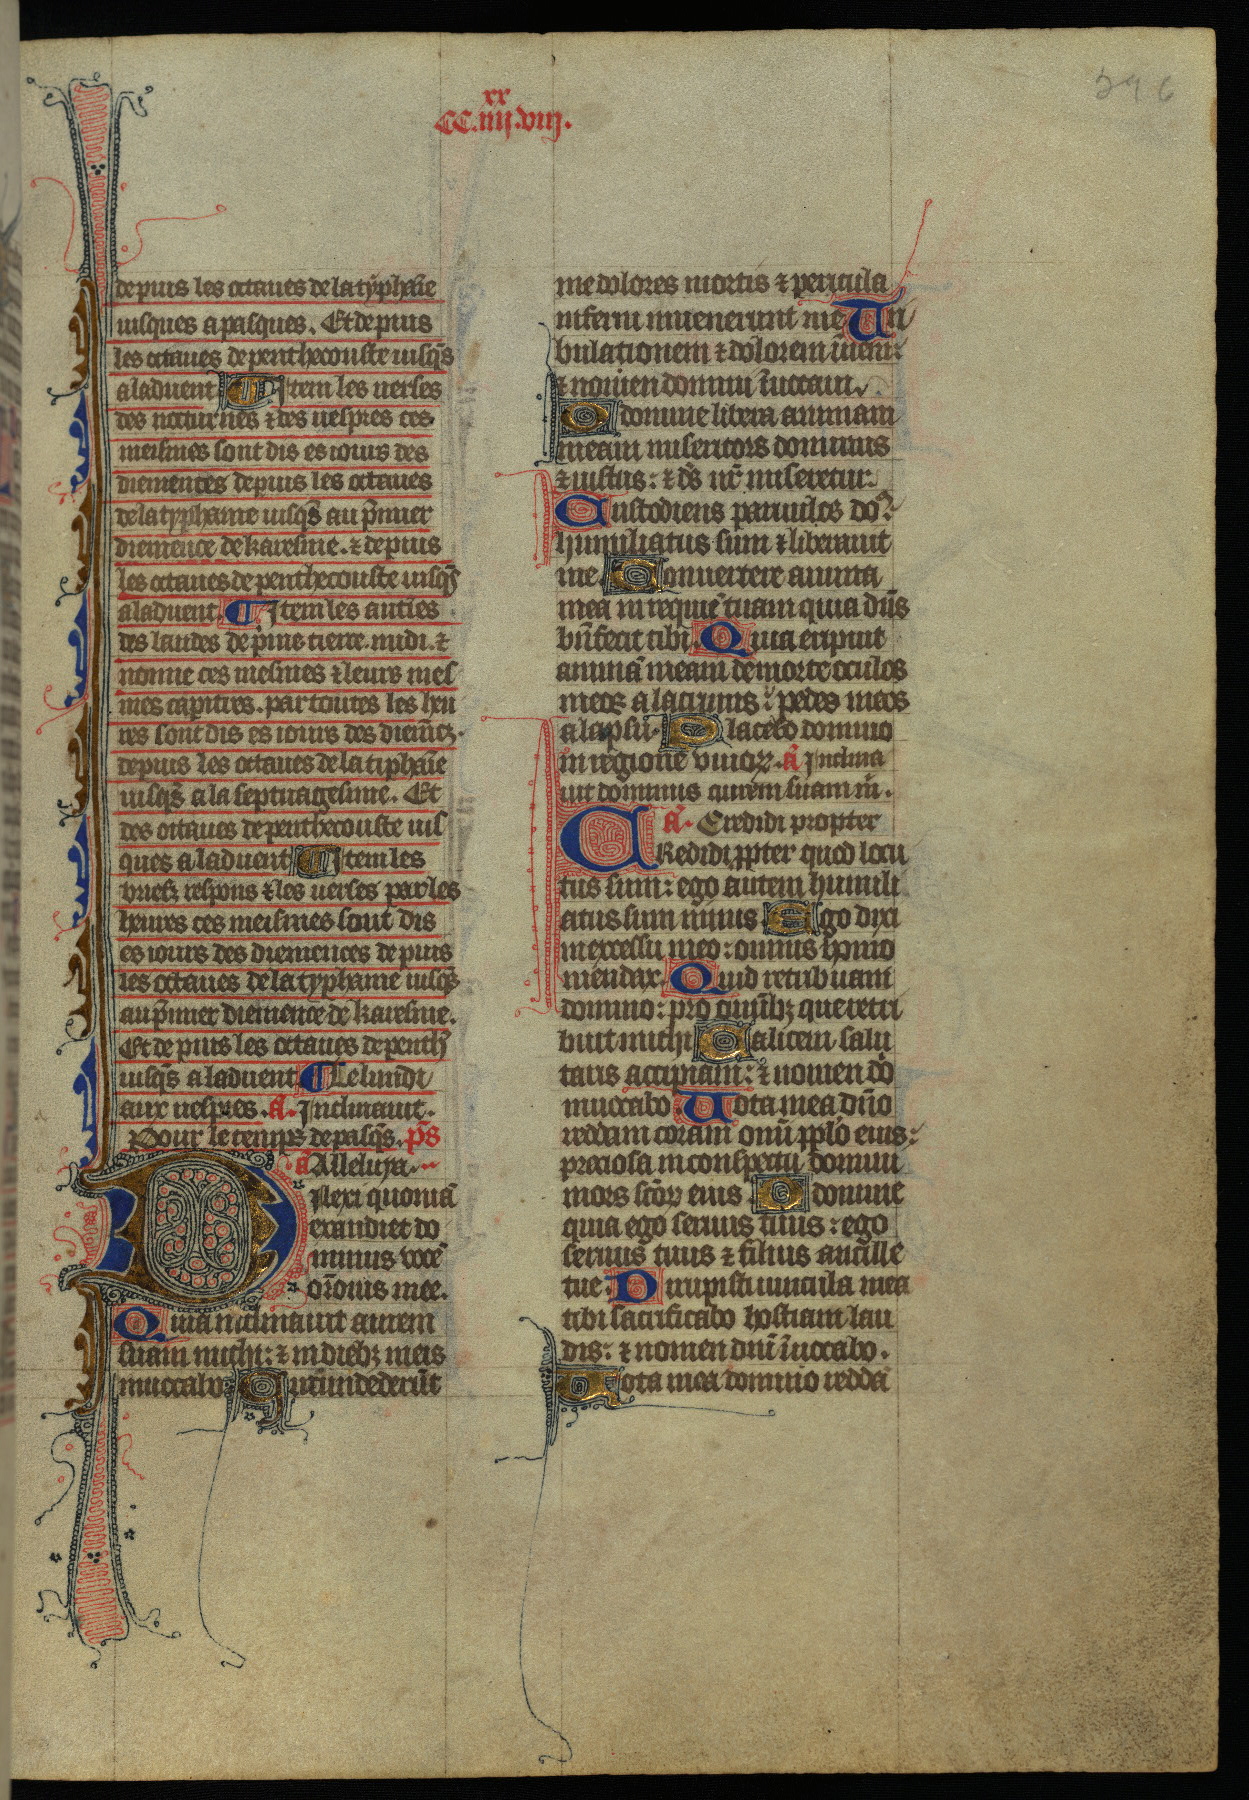 xx
CC.iiij.viij.
596
depuis les octaues de la typhaīe
iusques a pasques. Et depuis
les octaues de penthecouste iusqs̄
a laduent ¶ Item les uerses
des nocturnes ⁊ des uespres ces
meismes sont dis es iours des
diemences depuis les octaues
de la typhanie iusqs̄ au p̄mier
diemence de karesme. ⁊ depuis
les octaues de penthecouste iusqs̄
a laduent ¶ Item les antīes
des laudes de p̄me tierce. midi. ⁊
nonne ces meismes ⁊ leurs meis
mes capitres. par toutes les heu
res sont dis es iours des diemēcz.
depuis les octaues de la tiphaīe
iusqs̄ a la septuagesime. Et
des octaues de penthecouste ius
ques a laduent ¶ Item les
briefz respons ⁊ les uerses par les
heures ces meismes sont dis
es iours des diemences depuis
les octaues de la typhanie iusqs̄
au p̄mier diemence de karesme.
Et depuis les octaues de penth̄
iusqs̄ a laduent ¶ Le lundi
aux uespres. ā. Inclinauit.
Pour le temps de pasqs̄. p̄s
ā Alleluya.
Dilexi quoniā
exaudiet do
minus uocē
or̄onis mee.
Quia inclinauit aurem
suam michi: ⁊ in diebꝫ meis
inuocabo: Circūdederūt
me dolores mortis ⁊ pericula
inferni inuenerunt me Tri
bulationem ⁊ dolorem īueni:
⁊ nomen domini īuocaui.
O domine libera animam
meam misericors dominus
⁊ iustus: ⁊ ds̄ nr̄ miseretur.
Custodiens paruulos do?
humiliatus sum ⁊ liberauit
me. Conuertere anima
mea in requiē tuam quia dn̄s
bn̄fecit tibi. Quia eripuit
animā meam de morte oculos
meos a lacrimis: pedes meos
a lapsu. Placebo domino
in regione uiuoꝝ. ā Inclina
uit dominus aurem suam m̄.
ā. Credidi propter
CRedidi ꝓpter quod locu
tus sum: ego autem humili
atus sum nimis Ego dixi
in excessu meo: omnis homo
mendax. Quid retribuam
domino: pro omībꝫ que retri
buit michi Calicem salu
taris accipiam: ⁊ nomen do
inuocabo. Uota mea dn̄o
reddam coram omī ꝓplo eius:
preciosa in conspectu domini
mors sc̄oꝝ eius O domine
quia ego seruus tuus: ego
seruus tuus ⁊ filius ancille
tue. Dirupisti uincula mea
tibi sacrificabo hostiam lau
dis: ⁊ nomen dnī īuocabo.
Uota mea domino reddā